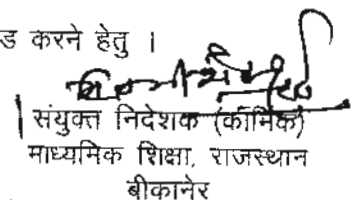 ड करने हेतु ।
संयुक्त निदेशक (कार्मिक)
माध्यमिक शिक्षा, राजस्थान
बीकानेर